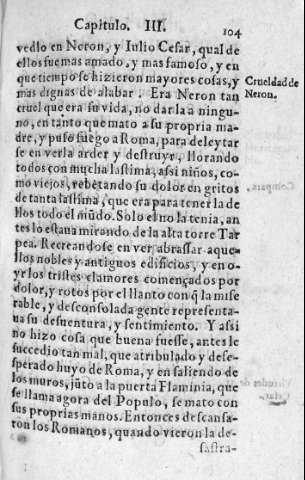 Capitulo. III. 104
vedlo en Neron, y Iulio Cesar, qual de
ellos fue mas amado, y mas famoso, y en
que tiempo se hizieron mayores cosas, y
mas dignas de alabar. Era Neron tan
Crueldad de
Neron.
cruel que era su vida, no darla a ningu-
no, en tanto que mato a su propria ma-
dre, y puso fuego a Roma, para deleytar
se en verla arder y destruyr, llorando
todos con mucha lastima, assi niños, co-
mo viejos, rebētando su dolor en gritos
de tanta lastima, que era para tener la de
llos todo el mūdo. Solo el no la tenia, an
tes lo estaua mirando de la alta torre Tar
pea. Recreandose en ver abrassar aque-
llos nobles y antiguos edificios, y en o-
yr los tristes clamores començados por
dolor, y rotos por el llanto con q̃ la mise
rable, y desconsolada gente representa-
ua su desuentura, y sentimiento. Y assi
no hizo cosa que buena fuesse, antes le
succedio tan mal, que atribulado y dese-
sperado huyo de Roma, y en saliendo de
los muros, jūto a la puerta Flaminia, que
se llama agora del Populo, se mato con
sus proprias manos. Entonces descansa-
ron los Romanos, quando vieron la de-
sastra-